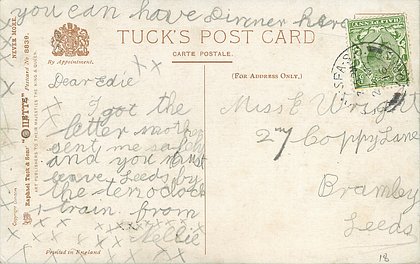 you can have Dinner here
TUCK'S POST CARD
CARTE POSTALE.
By Appointment.
(FOR ADDRESS ONLY.)
Dear Edie
I got the
letter mother
sent me safely
and you must
leave Leeds by
the ten oclock
train from
Nellie
Miss E Wright
27 Coppy Lane
Bramley
Leeds
18
Printed in England
Raphael Tuck & Sons' "OILETTE"
NEVER MORE.
ART PUBLISHERS TO THEIR MAJESTIES THE KING & QUEEN.